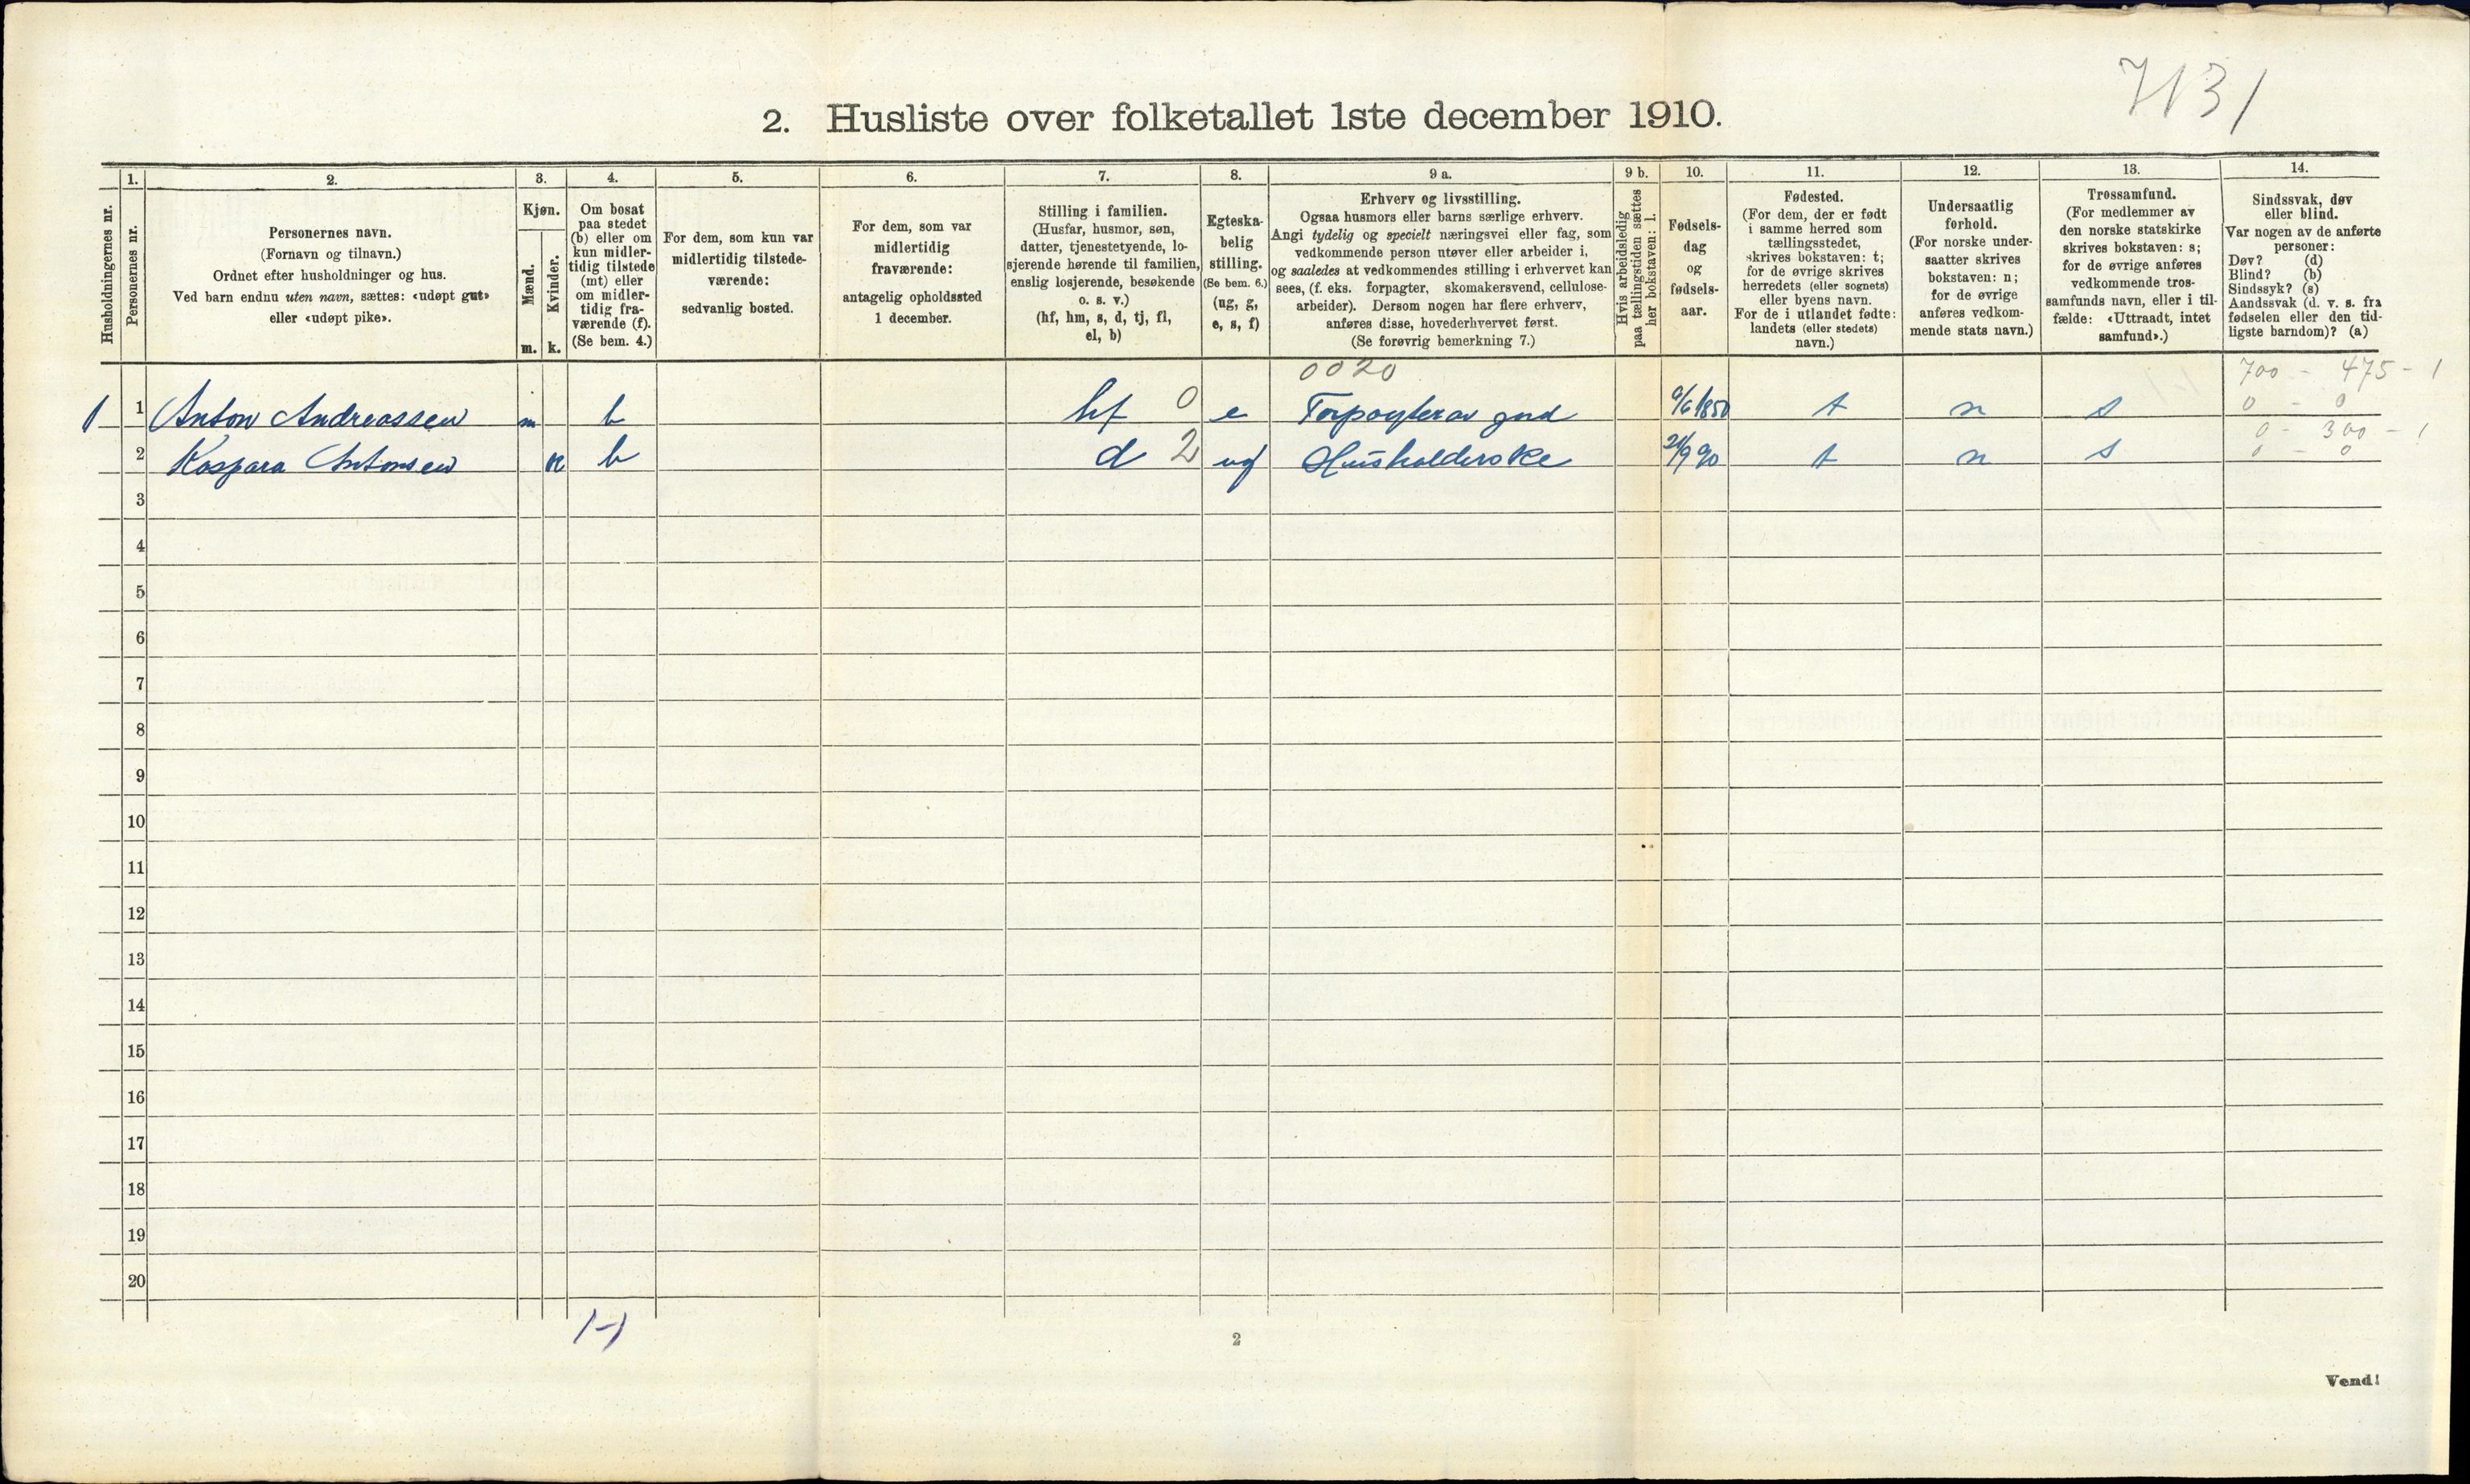 7131
2. Husliste over folketallet 1ste december 1910.
Husholdningernes nr.
1.
Personernes nr.
2.
Personernes navn.
(Fornavn og tilnavn.)
Ordnet efter husholdninger og hus.
Ved barn endnu uten navn, sættes: «udøpt gut»
eller «udøpt pike».
3.
Kjøn.
Mænd.
Kvinder.
m. k.
4.
Om bosat
paa stedet
(b) eller om
kun midler-
tidig tilstede
(mt) eller
om midler-
tidig fra-
værende (f).
(Se bem. 4.)
5.
For dem, som kun var
midlertidig tilstede-
værende:
sedvanlig bosted.
6.
For dem, som var
midlertidig
fraværende:
antagelig opholdssted
1 december.
7.
Stilling i familien.
(Husfar, husmor, søn,
datter, tjenestetyende, lo-
sjerende hørende til familien,
enslig losjerende, besøkende
o. s. v.)
(hf, hm, s, d, tj, fl,
el, b)
8.
Egteska-
belig
stilling.
(Se bem. 6.)
(ug, g,
e, s, f)
9 a.
Erhverv og livsstilling.
Ogsaa husmors eller barns særlige erhverv.
Angi tydelig og specielt næringsvei eller fag, som
vedkommende person utøver eller arbeider i,
og saaledes at vedkommendes stilling i erhvervet kan
sees, (f. eks. forpagter, skomakersvend, cellulose-
arbeider). Dersom nogen har flere erhverv,
anføres disse, hovederhvervet først.
(Se forøvrig bemerkning 7.)
9 b.
Hvis arbeidsledig
paa tællingstiden sættes
her bokstaven: l.
10.
Fødsels-
dag
og
fødsels-
aar.
11.
Fødested.
(For dem, der er født
i samme herred som
tællingsstedet,
skrives bokstaven: t;
for de øvrige skrives
herredets (eller sognets)
eller byens navn.
For de i utlandet fødte:
landets (eller stedets)
navn.)
12.
Undersaatlig
forhold.
(For norske under-
saatter skrives
bokstaven: n;
for de øvrige
anføres vedkom-
mende stats navn.)
13.
Trossamfund.
(For medlemmer av
den norske statskirke
skrives bokstaven: s;
for de øvrige anføres
vedkommende tros-
samfunds navn, eller i til-
fælde: «Uttraadt, intet
samfund».)
14.
Sindssvak, døv
eller blind.
Var nogen av de anførte
personer:
Døv? (d)
Blind? (b)
Sindssyk? (s)
Aandssvak (d. v. s. fra
fødselen eller den tid-
ligste barndom)? (a)
0020 700 - 475 - 1
1 1 Anton Andreassen m b hf 0 e 1850 t n s 0 - 0
0 - 300 - 1
2 Kaspara Antonsen k b d 2 ug Husholderske 24/9 90 t n s 0 - 0
3
4
5
6
7
8
9
10
11
12
13
14
15
16
17
18
19
20
1-1
2
Vend!